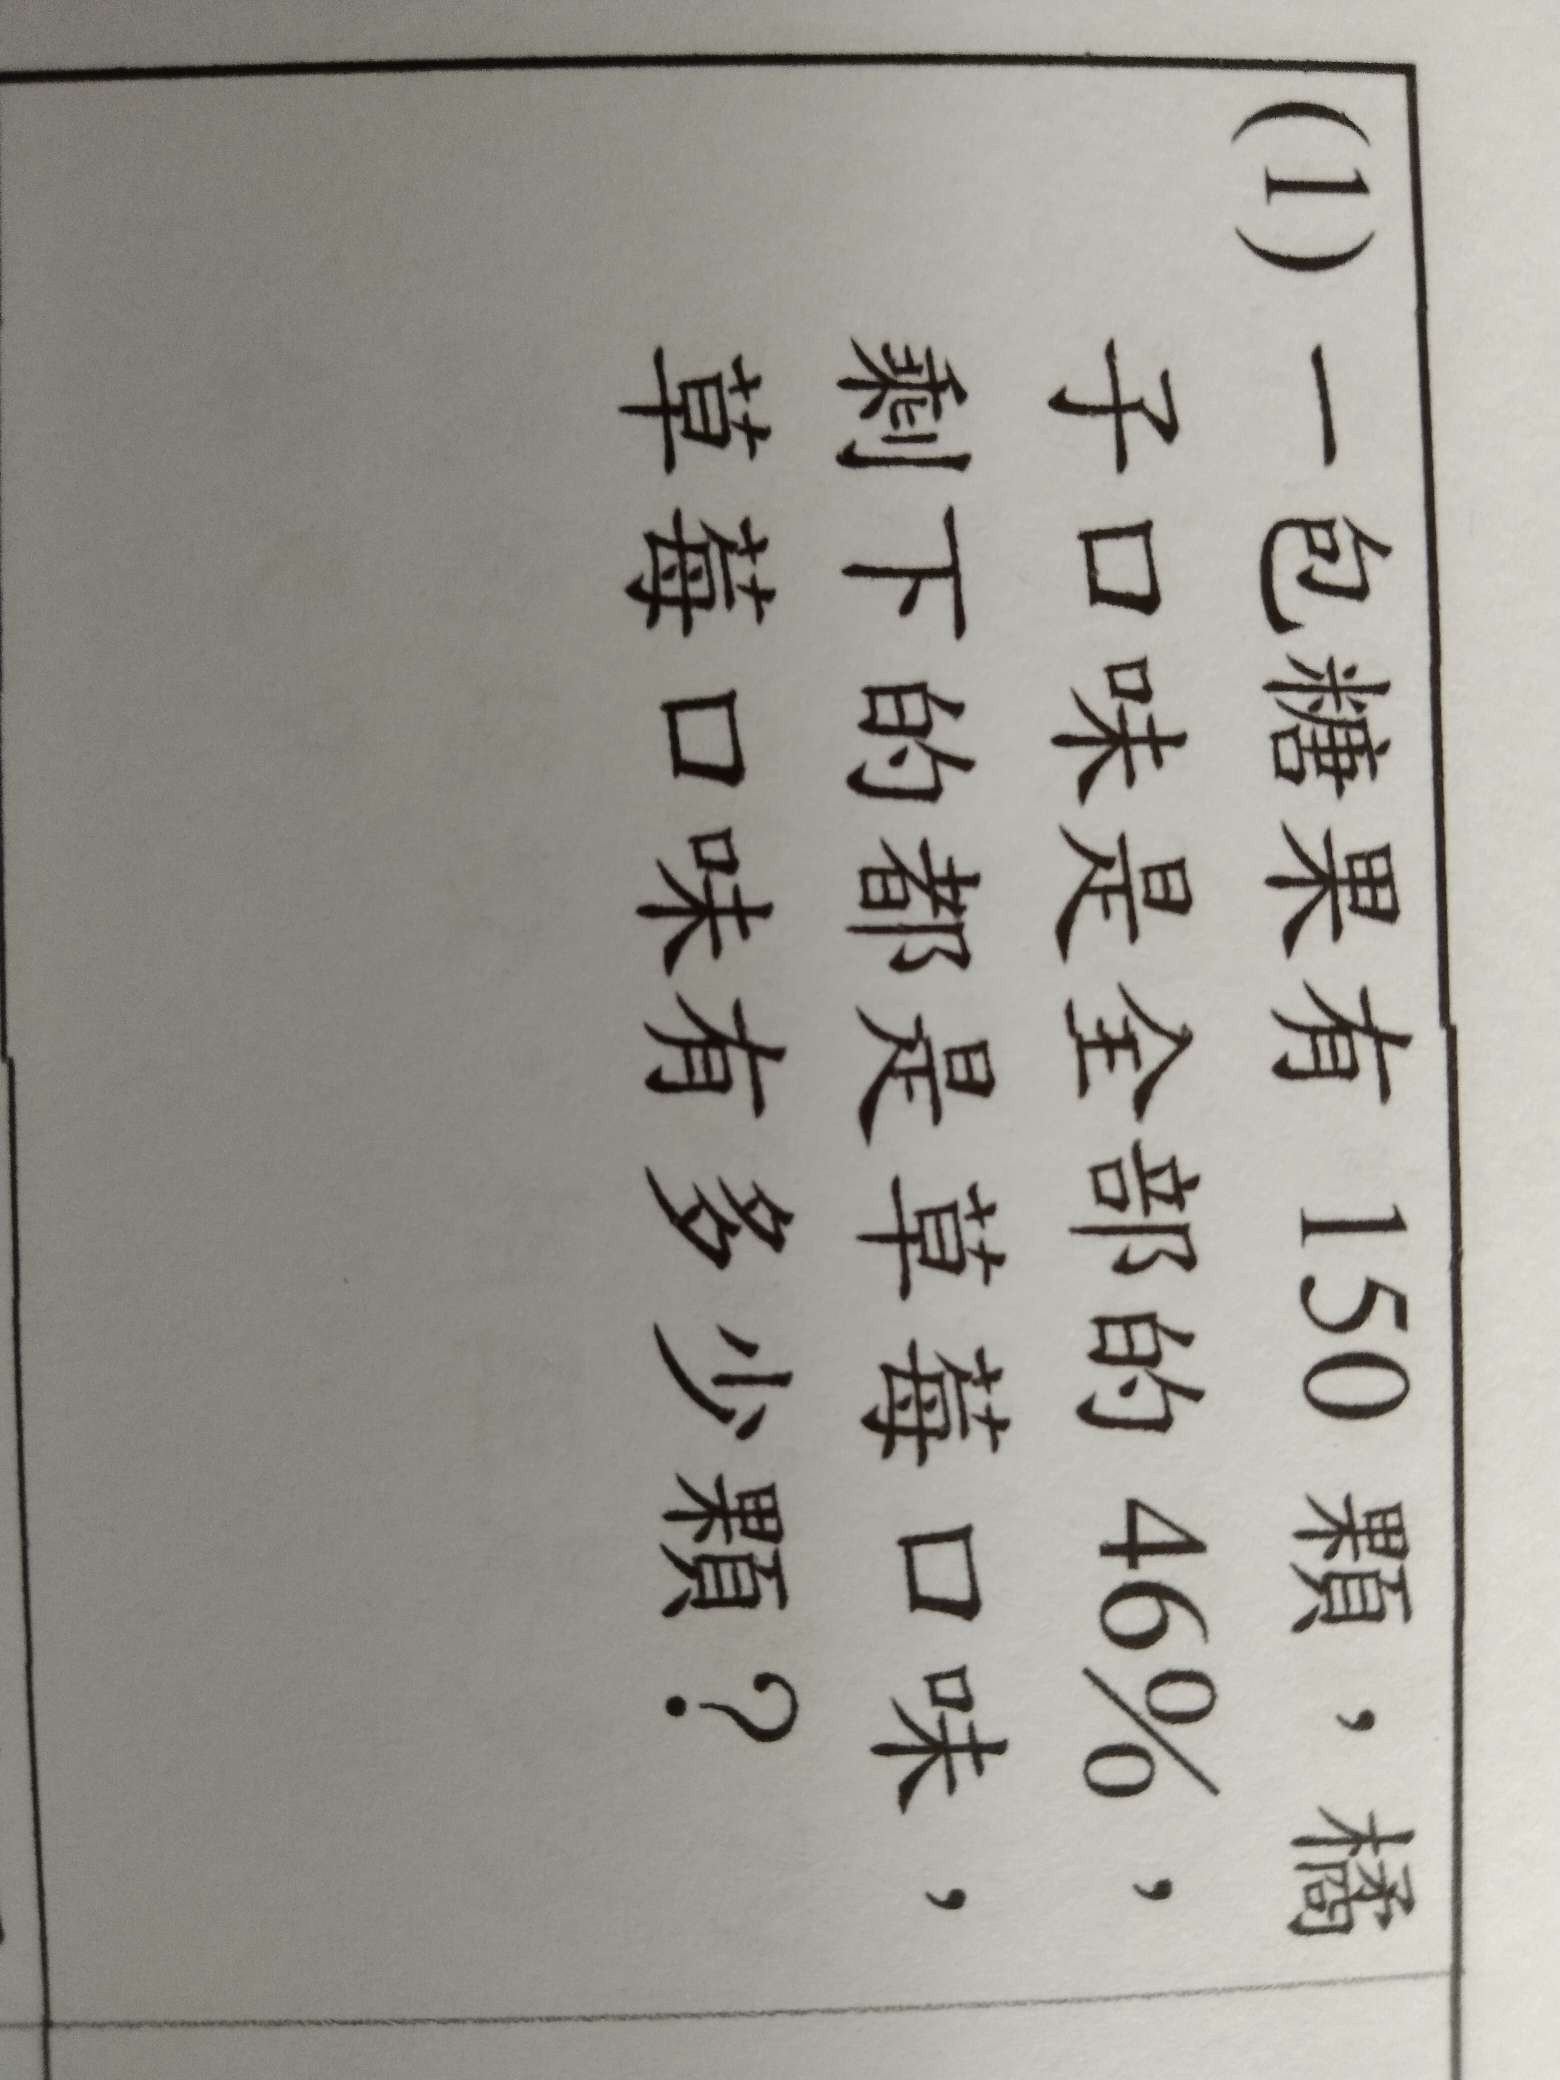 (1) 一包糖果有 150 顆，橘
子口味是全部的 46%，
剩下的都是草莓口味，
草莓口味有多少顆？